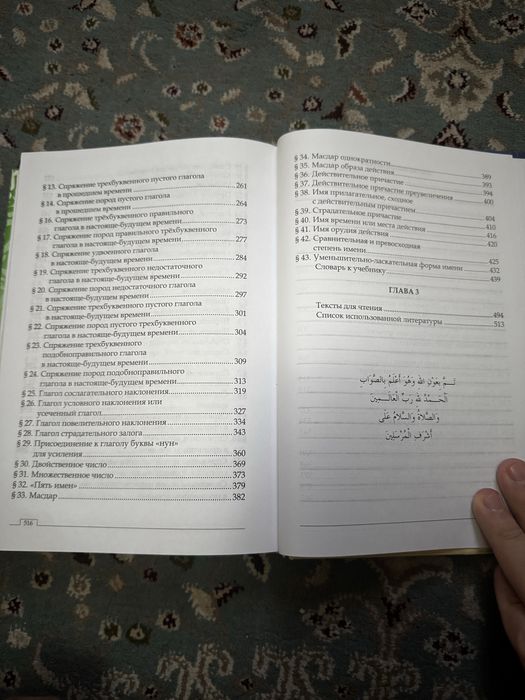 § 13. Спряжение трехбуквенного пустого глагола
в прошедшем времени ..... 261
§ 14. Спряжение пород пустого глагола
в прошедшем времени ..... 264
§ 16. Спряжение трёхбуквенного правильного
глагола в настояще-будущем времени ..... 273
§ 17. Спряжение пород правильного трёхбуквенного
глагола в настояще-будущем времени ..... 277
§ 18. Спряжение удвоенного глагола
в настояще-будущем времени ..... 284
§ 19. Спряжение трехбуквенного недостаточного
глагола в настояще-будущем времени ..... 292
§ 20. Спряжение пород недостаточного глагола
в настояще-будущем времени ..... 297
§ 21. Спряжение трехбуквенного пустого глагола
в настояще-будущем времени ..... 301
§ 22. Спряжение пород пустого трехбуквенного
глагола в настояще-будущем времени ..... 304
§ 23. Спряжение трехбуквенного
подобноправильного глагола
в настояще-будущем времени ..... 309
§ 24. Спряжение пород подобноправильного
глагола в настояще-будущем времени ..... 313
§ 25. Глагол сослагательного наклонения ..... 319
§ 26. Глагол условного наклонения или
усеченный глагол ..... 327
§ 27. Глагол повелительного наклонения ..... 334
§ 28. Глагол страдательного залога ..... 343
§ 29. Присоединение к глаголу буквы «нун»
для усиления ..... 360
§ 30. Двойственное число ..... 369
§ 31. Множественное число ..... 373
§ 32. «Пять имен» ..... 379
§ 33. Масдар ..... 382
516
§ 34. Масдар однократности
§ 35. Масдар образа действия ..... 389
§ 36. Действительное причастие ..... 393
§ 37. Действительное причастие преувеличения ..... 394
§ 38. Имя прилагательное, сходное ..... 400
с действительным причастием
§ 39. Страдательное причастие ..... 404
§ 40. Имя времени или места действия ..... 410
§ 41. Имя орудия действия ..... 416
§ 42. Сравнительная и превосходная ..... 420
степень имени
§ 43. Уменьшительно-ласкательная форма имени ..... 425
Словарь к учебнику ..... 432
439
ГЛАВА 3
Тексты для чтения ..... 494
Список использованной литературы ..... 513
تَـمَّ بِعَوْنِ اللهِ وَهُوَ أَعْلَمُ بِالصَّوَابِ
الْحَمْدُ للهِ رَبِّ الْعَالَـمِينَ
وَالصَّلَاةُ وَالسَّلَامُ عَلَى
أَشْرَفِ الْمُرْسَلِينَ